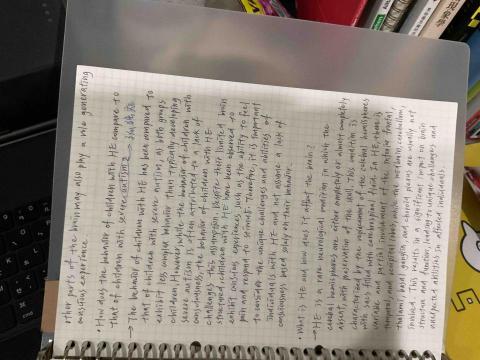 other parts of the brain may also play a role generating
conscious experience.
• How does the behavior of children with HE compare to
that of children with severe autism?
→ The behavior of children with HE has been compared to
that of children with severe autism, as both groups
exhibit less complex behavior than typically developing
children. However, while the behavior of children with
severe autism is often attributed to a lack of
consciousness, the behavior of children with HE
challenges this assumption. Despite their limited brain
structures, children with HE have been observed to
exhibit conscious experiences, such as the ability to feel
pain and respond to stimuli. Therefore, it is important
to consider the unique challenges and abilities of
individuals with HE and not assume a lack of
consciousness based solely on their behavior.
• What is HE and how does it affect the brain?
→ HE is a rare neurological condition in which the
cerebral hemispheres are either completely or almost completely
absent, with preservation of the This condition is
characterized by the replacement of the cerebral hemispheres
with sacs filled with cerebrospinal fluid. In HE, there is
variable partial involvement of the inferior frontal,
temporal, and occipital regions, while the midbrain, cerebellum,
thalami, basal ganglia, and choroid plexus are usually not
involved. This results in a significant impact on brain
structure and function, leading to unique challenges and
unexpected abilities in affected individuals.